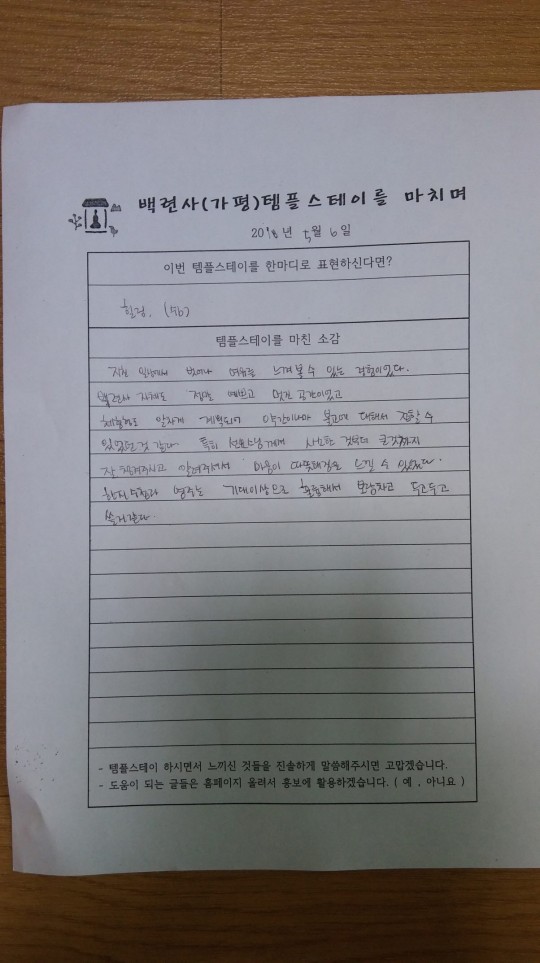 백련사(가평)템플스테이를 마치며
2018년 5월 6일
이번 템플스테이를 한마디로 표현하신다면?
힐링,
템플스테이를 마친 소감
지친 일상에서 벗어나 여유를 느껴볼 수 있는 경험이었다.
백련사 자체도 정말 예쁘고 멋진 공간이었고
체험도 알차게 계획되어 약간이나마 불교에 대해서 접할 수
있었던 것 같다. 특히 스님께서 사소한 것부터 큰것까지
잘 챙겨주시고 알려주셔서 마음이 따뜻해짐을 느낄 수 있었다.
염주는 기대이상으로 훌륭해서 보람차고 두고두고
쓸거같다.
- 템플스테이 하시면서 느끼신 것들을 진솔하게 말씀해주시면 고맙겠습니다.
- 도움이 되는 글들은 홈페이지 올려서 홍보에 활용하겠습니다. ( 예 , 아니요 )